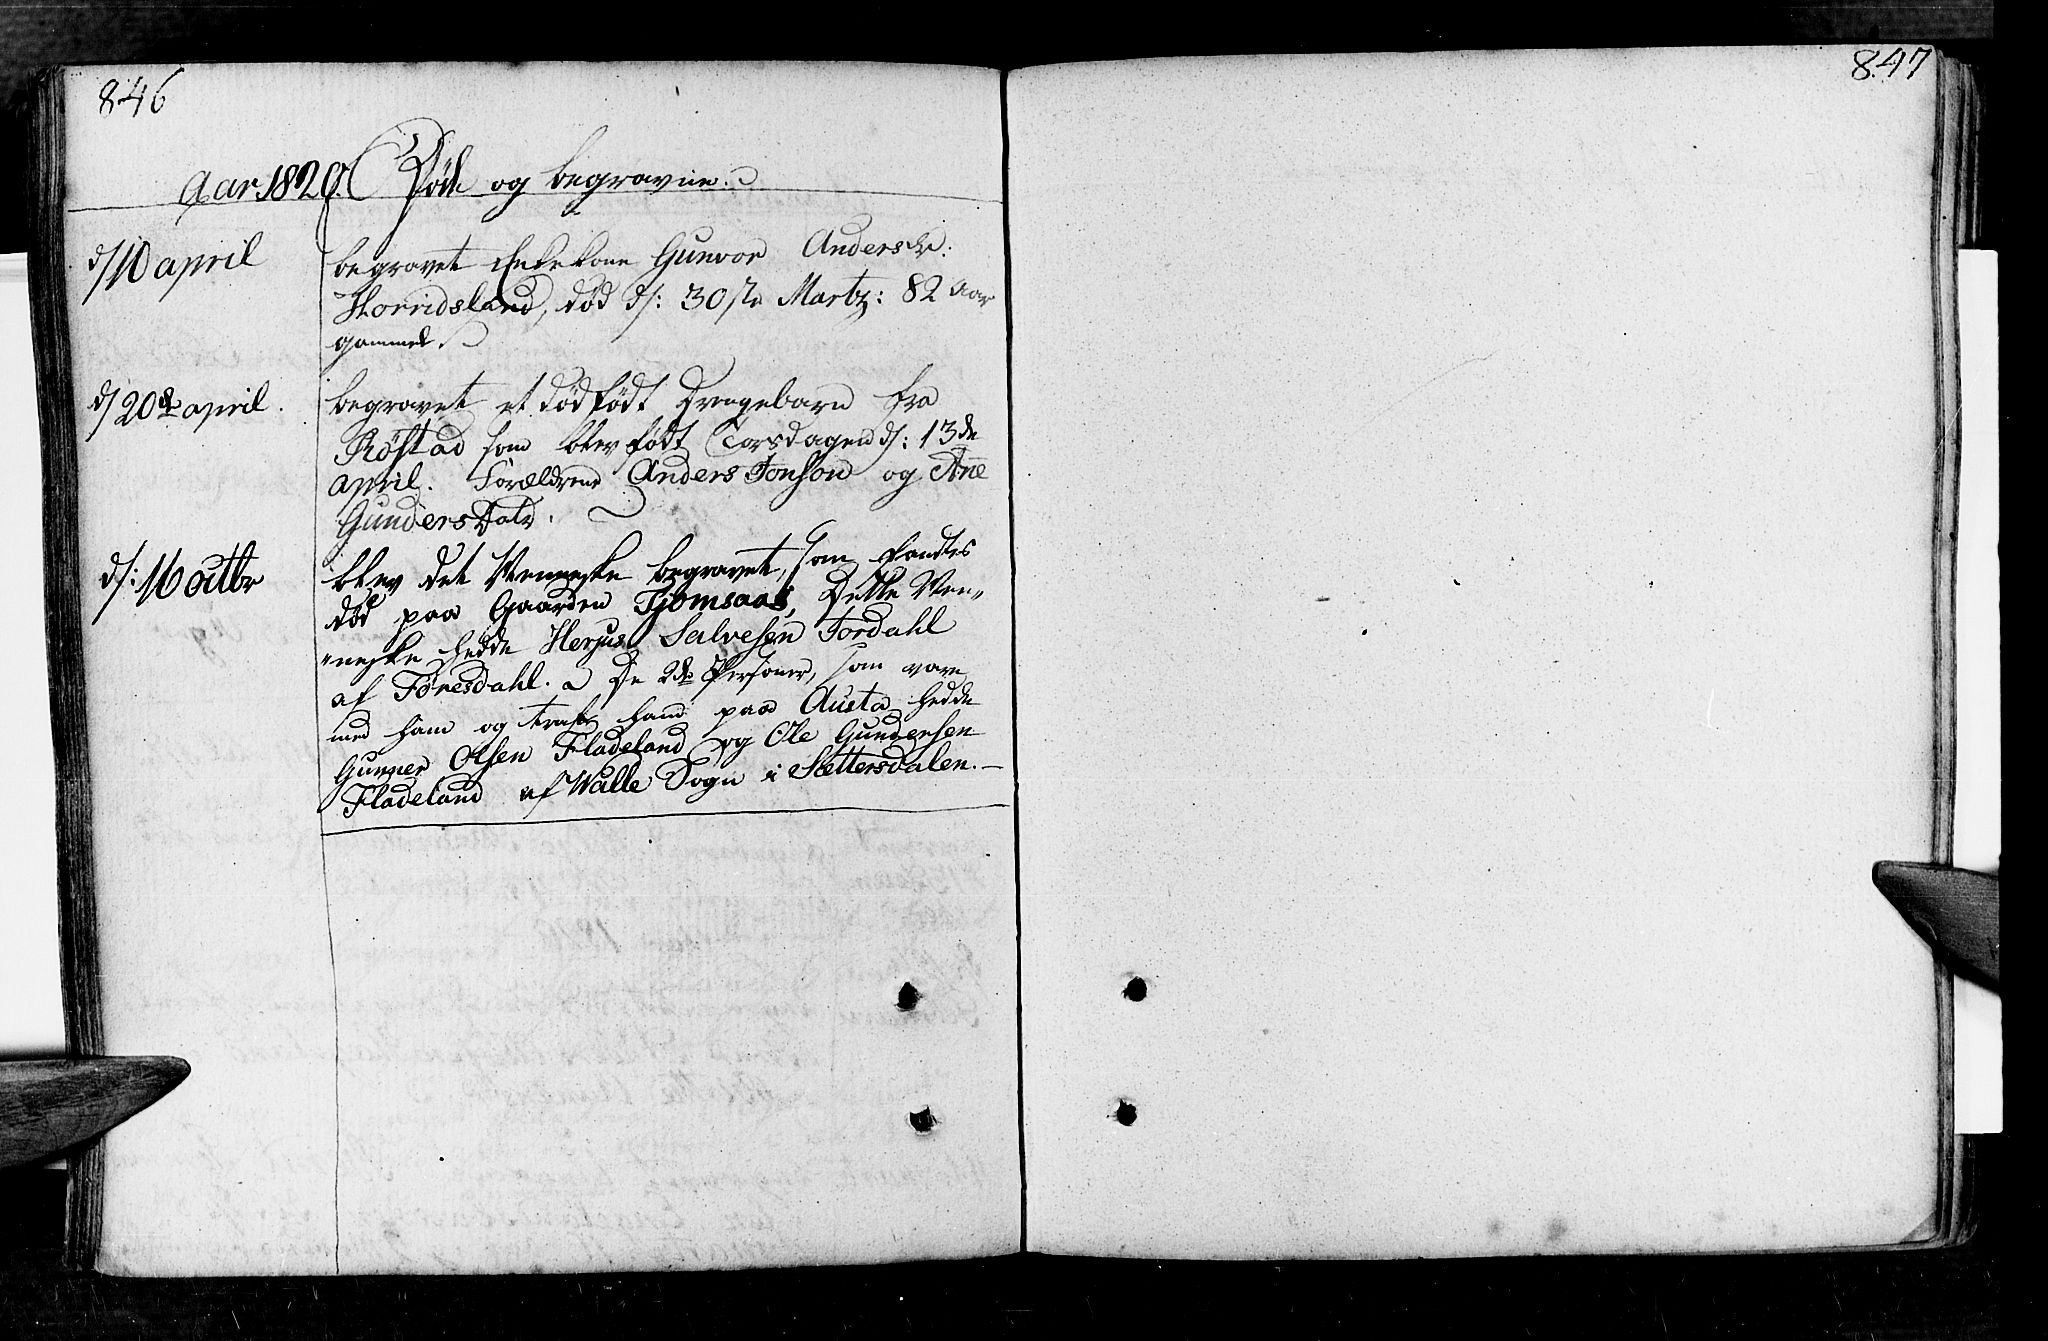 846
Aar 1820. Døde og begravne.
d/10 april begravet Enkekone Gunvor Andersdr:
Horridsland, død d/: 30te Martz: 82 Aar
gammel.
d/20de april. begravet et dødfødt Drengebarn fra
Røstad som blev født Torsdagen d/: 13de
april. Forældrene Anders Jonson og Ane
Gundersdatr.
d/: 16 octbr blev det Menneske begravet, som fandtes
død paa Gaarden Tjomsaas, Dette Men„
„neske hedde Herjus Salvesen Tordahl
af Tønesdahl. De 2de Personer, som vare
med ham og ham paa Austa hedde
Gunner Olsen Fladeland og Ole Gundersen
Fladeland af Walle Sogn i Sættersdalen.
847